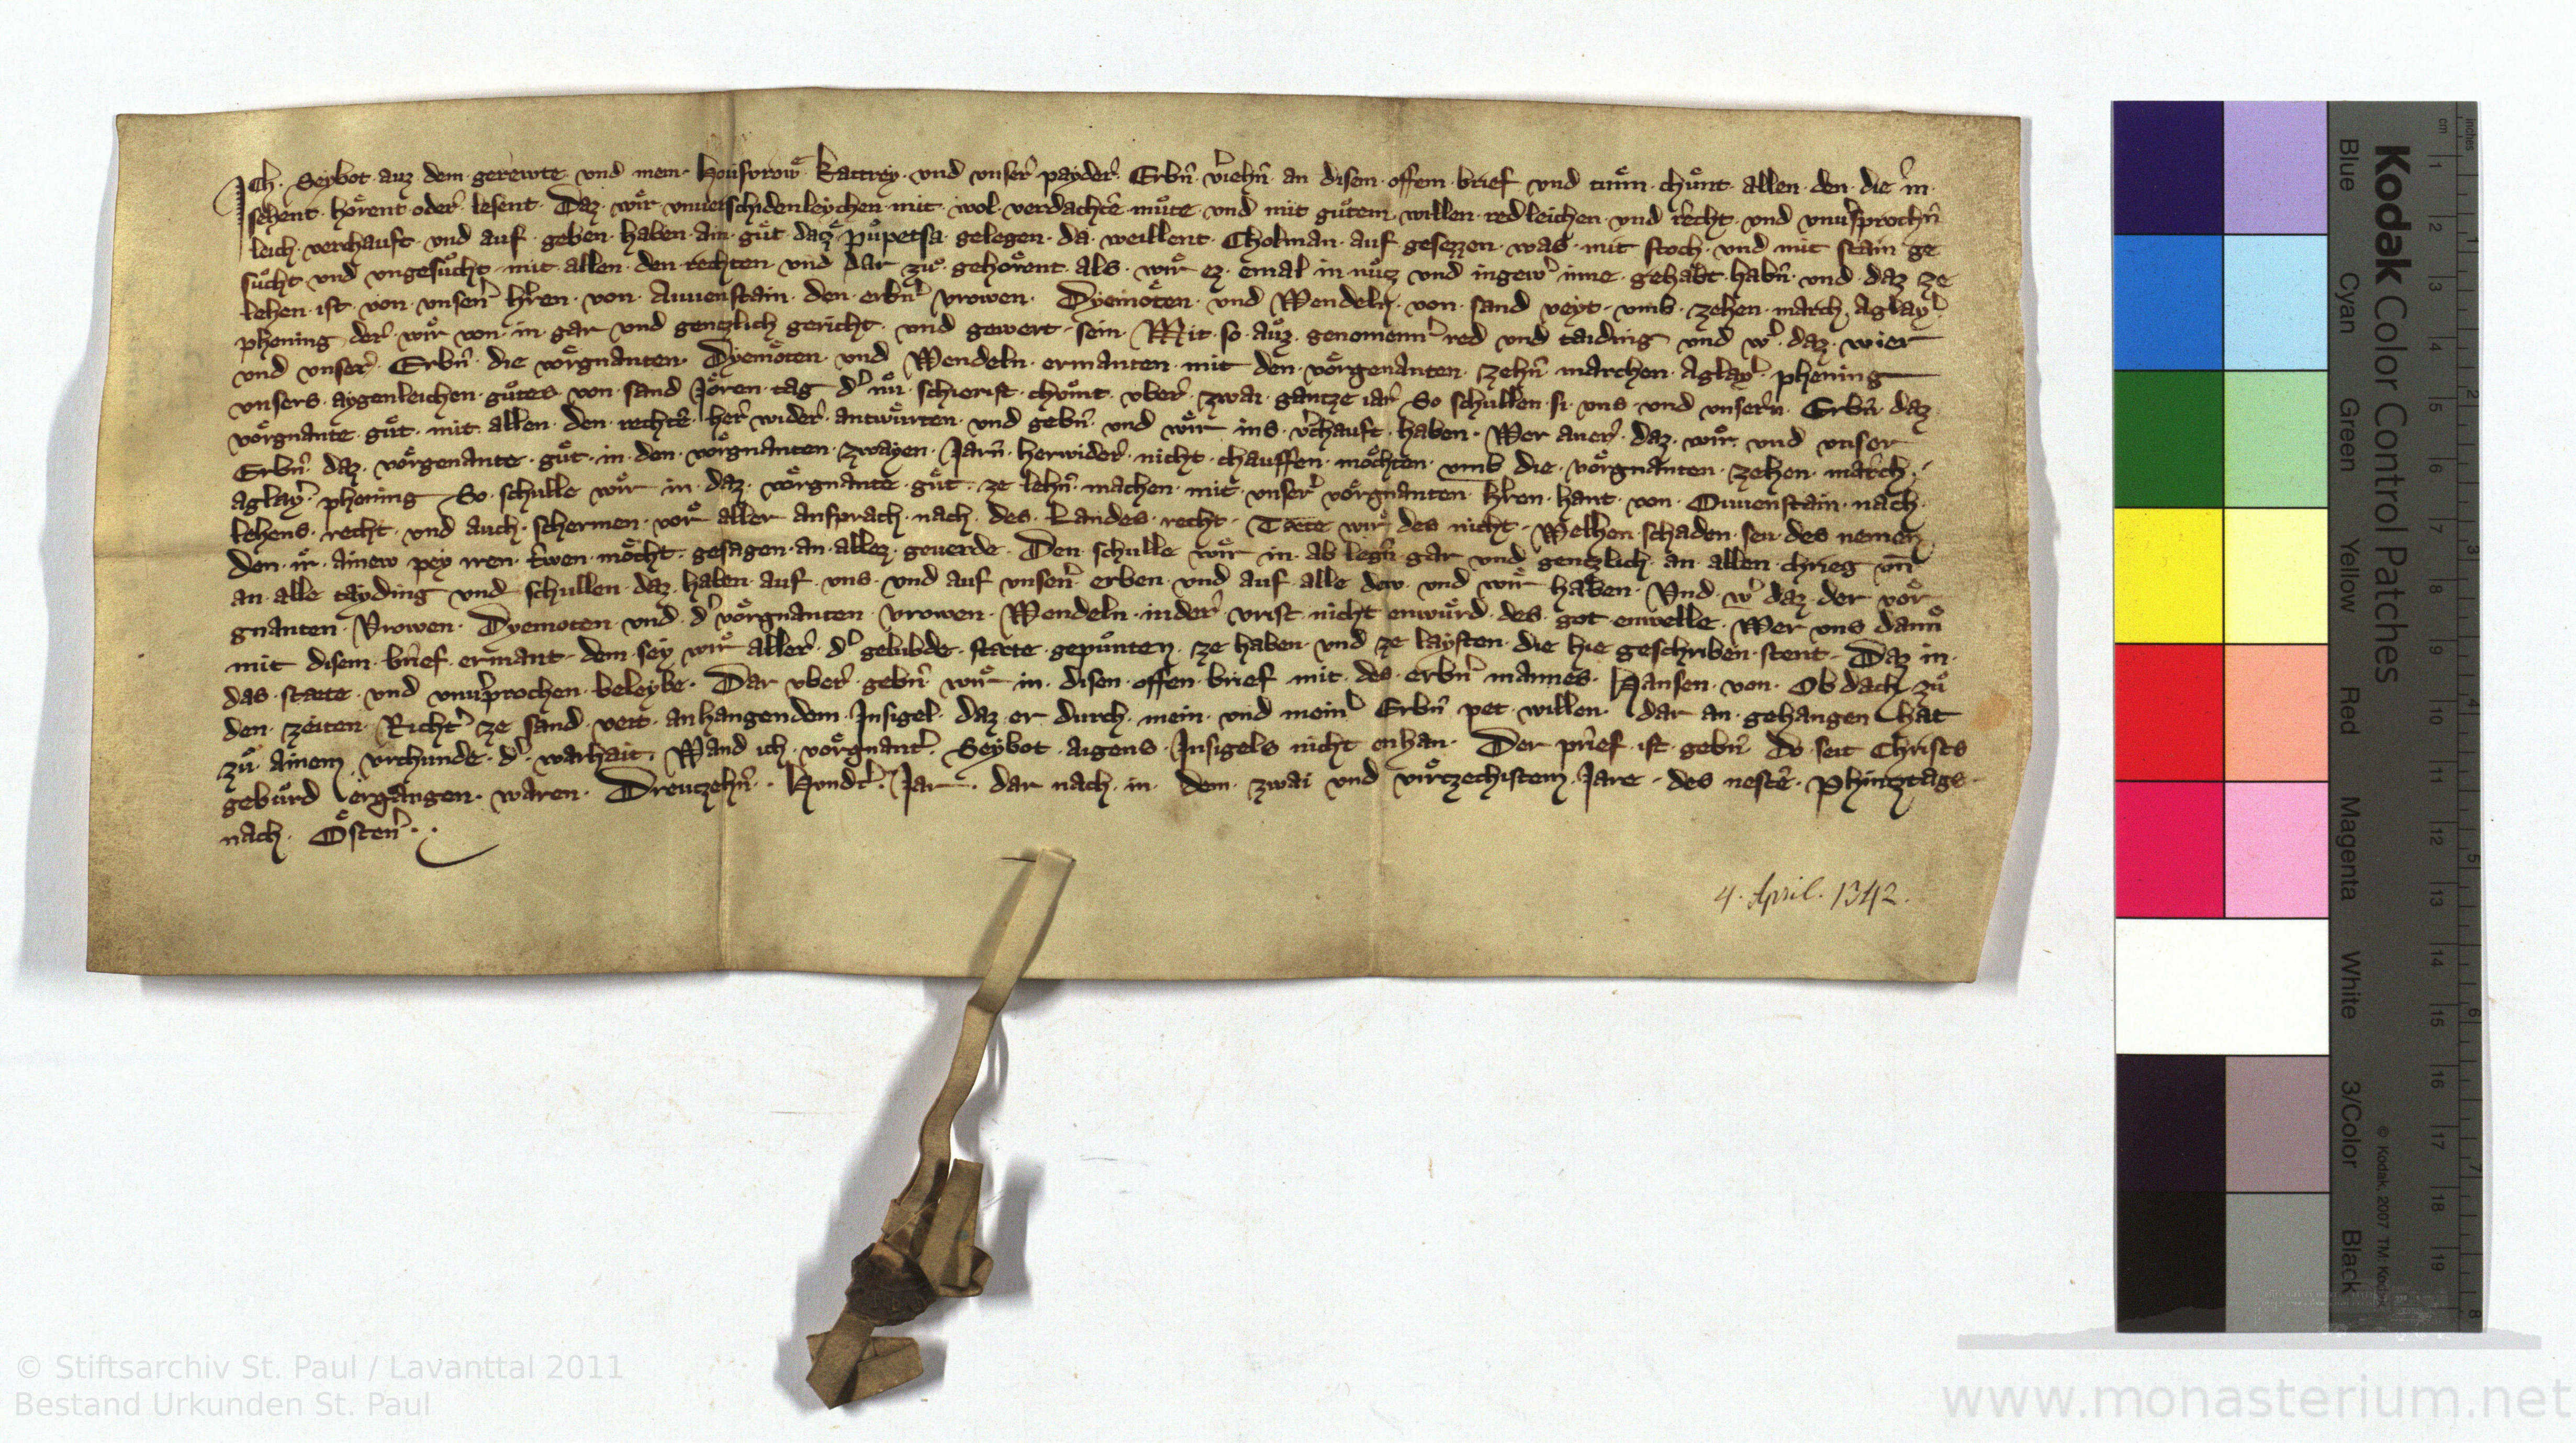 Ich · Seybot · auz · dem · gerewte · und · mein · Housvrow̓ · Katrey · und · unser̓ · payder̓ · Erbn̄ · v̓iehn̄ · an · disem · offem · brief · und · tuͤn · chuͤnt · allen · den · die · in ·
sehent · hoͤrent · oder̓ · lesent · Daz · wiͤr · unuerschidenleychen · mit · wol · verdachtē · muͦte · und · mit · guͦtem · willen · redleichen · und · recht · und · unu̓sprochn̄
leich · verchauft · und · auf · geben · haben · ain · guͦt · daz · Puͤpetsa · gelegen · da · weillent · Cholman · auf · gesezzen · was · mit · stoch · und · mit · stain · ge
suͦcht · und · ungesuͦcht · mit · allen · den · rechten · und · dar · zuͦ · gehoͤrent · als · wiͤr · ez · emal · in · nuͤtz · und · ingew̓ · inne · gehabt · habn̄ · und · daz · ze
lehen · ist · von · unsern̄ · hr̄en · von · Auuenstain · den · erbn̄ · vrowen · Dyemoͤten · und · Wendeln · von · sand · veyt · umb · zehen · march · Aglay̓
phening · der̓ · wiͤr · von · in · gar · und · gentzlich · gericht · und · gewert · sein · Mit · so · auͤz · genomenn̓ · red · und · taiding · und · w̓ · daz · wier
und · unser̓ · Erbn̄ · die · voͤrgnanten · Dyemoͤten · und · Wendeln · ermanten · mit · den · voͤrgenanten · zehn̄ · marchen · Aglay̓ · phening
unsers · aygenleichen · guͦtes · von · sand · Joͤren · tag · d̓ · nuͤ · schierist · chuͤmt · uber̓ · zwai · gantze · iar · So · schullen · si · uns · und · unsern̄ · Erbn̄ · daz
voͤrgnante · guͦt · mit · allen · den · rechtē · her̓ · wider̓ · antwuͤrten · und · gebn̄ · und · wiͤr · ins · v̓chauft · haben · Wer · auer̓ · daz · wiͤr · und · unser
Erbn̄ · daz · voͤrgenante · guͦt · in · den · voͤrgnanten · zwayen · Jarn̄ · herwider̓ · nicht · chauffen · moͤchten · umb · die · voͤrgnanten · zehen · march ·
aglay̓ · phening · So · schulle · wiͤr · in · daz · voͤrgnante · guͦt · ze · lehn̄ · machen · mit · unser̓ · voͤrgnanten · hr̄en · hant · von · Ouuenstain · nach ·
lehens · recht · und · auch · schermen · voͤr · aller · ansprach · nach · des · Landes · recht · Taete · wiͤr · des · nicht · Welhen · schaden · seu · des · nemen
den · ir · ainew · pey · iren · trwen · moͤcht · gesagen · an · allez · geuerde · Den · schulle · wiͤr · in · ab · legn̄ · gar · und · gentzlich · an · allen · chrieg · un̄
an · alle · tayding · und · schullen · daz · haben · auf · uns · und · auf · unsern̄ · erben · und · auf · alle · dew · und · wiͤr · haben · Und · w̓ · daz · der · voͤr
gnanten · Vrowen · Dyemoten · und · d̓ · voͤrgnanten · vrowen · Wendeln · inder̓ · vrist · nicht · enwuͤrd · des · got · enwelle · Wer · uns · dann
mit · disem · brief · ermant · dem · sey · wiͤr · aller̓ · d̓ · gelubde · staete · gepuͤnten · ze · haben · und · ze · laysten · die · hie · geschriben · stent · Daz · in ·
das · staete · und · unu̓prochen · beleybe · Dar · uber̓ · gebn̄ · wiͤr · in · disen · offen · brief · mit · des · erbn̄ · mannes · Hansen · von · Obdach · zuͦ
den · zeiten · Richt̓ · ze · sand · veit · anhangendem · Insigel · daz · er · durch · mein · und · mein̓ · Erbn̄ · pet · willen · dar · an · gehangen · hat
zuͦ · ainem · urchunde · d̓ · warhait · Wand · ich · voͤrgnant̓ · Seybot · aigens · Insigels · nicht · enhan · Der · prief · ist · gebn̄ · do · seit · Christs
gebuͤrd · ergangen · waren · Dreutzehn̄ · Hundt̓ · Jar · dar · nach · in · dem · zwai · und · viͤrtzechistem · Jare · des · nestē · Phintztags ·
nach · Oͤstern̄ ·
4. April. 1342.
Kodak Color Control Patches
Blue Cyan Green Yellow Red Magenta White 3/Color Black
© Kodak, 2007 TM: Kodak
cm 1 2 3 4 5 6 7 8 9 10 11 12 13 14 15 16 17 18 19
inches 1 2 3 4 5 6 7 8
© Stiftsarchiv St. Paul / Lavanttal 2011
Bestand Urkunden St. Paul
www.monasterium.net